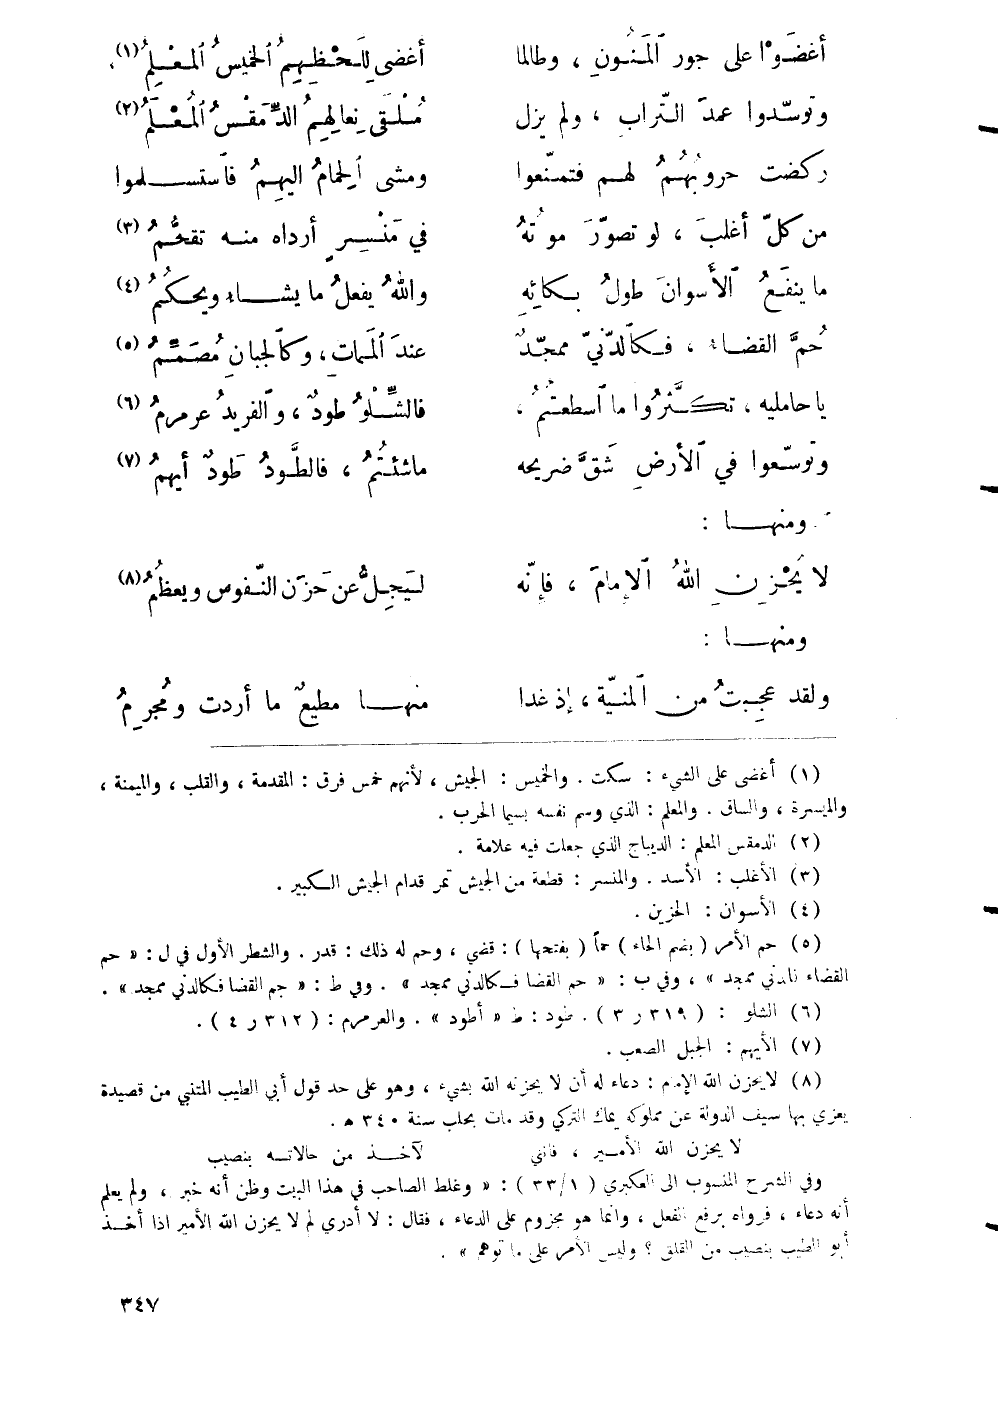 أغضَوْا على جور ٱلمَنُونِ ، وطالما أغضى لِلَحْظِهِمُ ٱلخميسُ ٱلمعْلِمُ (١)
وتوسّدوا عمدَ التّرابِ ، ولم يزل مُلْقَى نِعالهِمُ الدِّمَقْسُ ٱلمُعْلَمُ (٢)
ركضت حروبُهُمُ لهم فتمنّعوا ومشى ٱلحِمامُ اليهِمُ فٱستسلموا
من كلّ أغلبَ ، لو تصوّرَ موتهُ في مَنْسِرٍ أرداه منه تقحُّمُ (٣)
ما ينفَعُ ٱلأسوانَ طولُ بكائِهِ واللهُ يفعلُ ما يشاء ويحكُمُ (٤)
حُمَّ القضاء ، فكٱلدّنيّ ممجّدٌ عندَ ٱلمماتِ ، وكٱلجبانِ مُصَمِّمُ (٥)
يا حامليه ، تكثَّروا ما ٱسطعتُمُ ، فالشِّلْوُ طودٌ ، وٱلفريدُ عرمرمُ (٦)
وتوسّعوا في ٱلأرضِ شقَّ ضريحه ماشئتُمُ ، فالطَّودُ طَودٌ أيهمُ (٧)
ومنها :
لا يُحْزِنِ اللهُ ٱلإمامَ ، فإنّه لَيَجِلُّ عن حَزَن النّفوس ويعظُمُ (٨)
ومنها :
ولقد عجِبتُ من ٱلمنيّة ، إذ غدا منها مطيعٌ ما أردت ومُجرِمُ
(١) أغضى على الشيء : سكت . والخميس : الجيش ، لأنهم خمس فرق : المقدمة ، والقلب ، والميمنة ،
والميسرة ، والساق . والمعلم : الذي وسم نفسه بسيما الحرب .
(٢) الدمقس المعلم : الديباج الذي جعلت فيه علامة .
(٣) الأغلب : الأسد . والمنسر : قطعة من الجيش تمر قدام الجيش الكبير .
(٤) الأسوان : الحزين .
(٥) حم الأمر ( بضم الحاء ) حماً ( بفتحها ) : قضي ، وحم له ذلك : قدر . والشطر الأول في ل : « حم
القضاء ممجد » ، وفي ب : « حم القضا فكالدني ممجد » . وفي ط : « جم القضا فكالدني ممجد » .
(٦) الشلو : ( ٣١٩ ر ٣ ) . طود : ط « أطود » . والعرمرم : ( ٣١٢ ر ٤ ) .
(٧) الأيهم : الجبل الصعب .
(٨) لايحزن الله الإمام : دعاء له أن لا يحزنه الله بشيء ، وهو على حد قول أبي الطيب المتنبي من قصيدة
يعزي بها سيف الدولة عن مملوكه يماك التركي وقد مات بحلب سنة ٣٤٠ هـ .
لا يحزن الله الأمير ، فانني لآخذ من حالاته بنصيب
وفي الشرح المنسوب الى العكبري ( ١/ ٣٣ ) : « وغلط الصاحب في هذا البيت وظن أنه خبر ، ولم يعلم
أنه دعاء ، فرواه برفع الفعل ، وانما هو مجزوم على الدعاء ، فقال : لا أدري لم لا يحزن الله الأمير اذا أخذ
أبو الطيب بنصيب من القلق ؟ وليس الأمر على ما توهم » .
٣٤٧